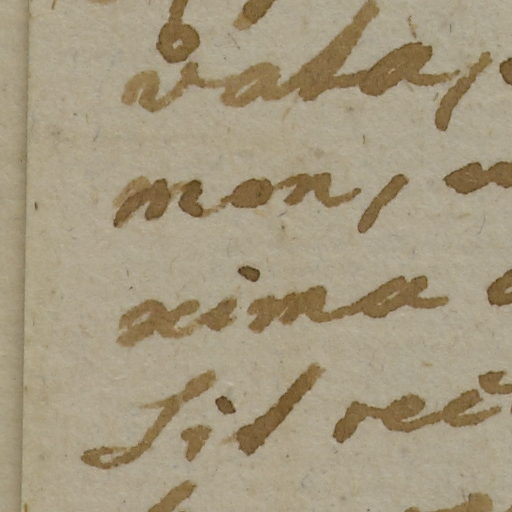 vata,
mon,
xima
Sil rec